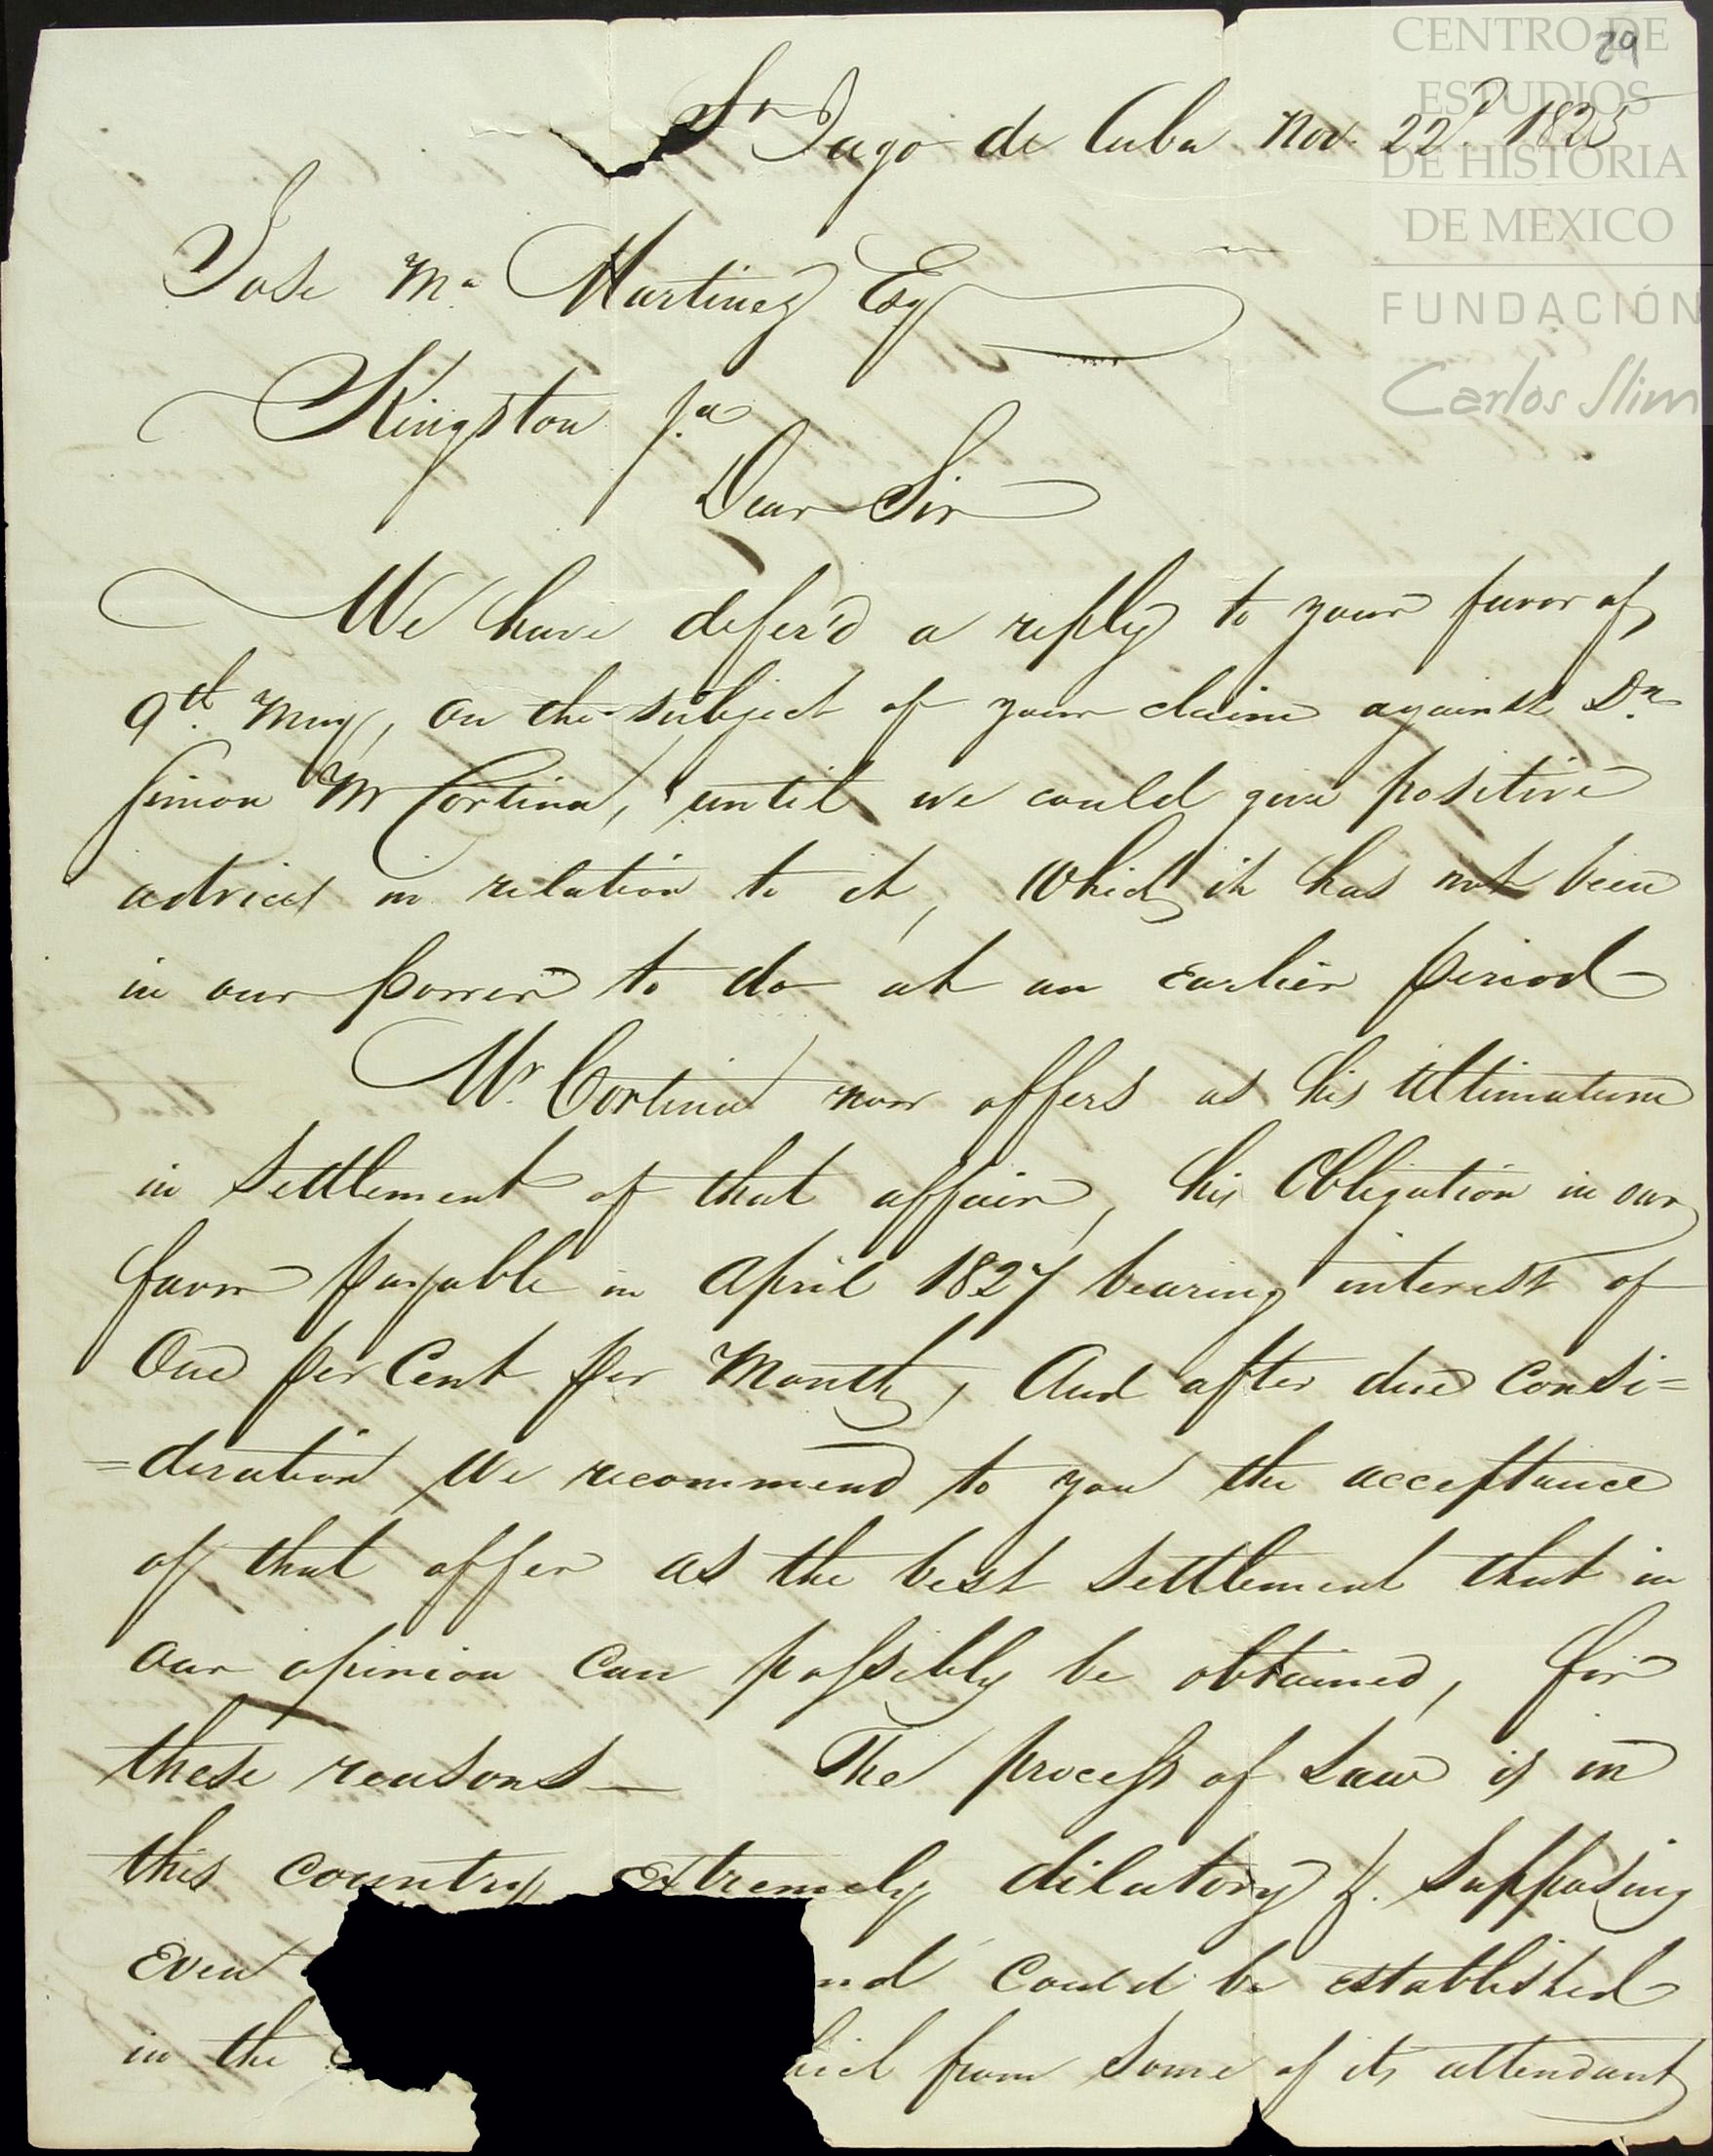 29
CENTRO DE
ESTUDIOS
DE HISTORIA
DE MEXICO
FUNDACIÓN
Carlos Slim
Sn Jago de Cuba Nov. 22d. 1825
Jose Ma Martinez Esq
Kingston Ja
Dear Sir
We have defer'd a reply to your favor of
9th. May, on the subject of your claim against Dn
Simon M Cortina, until we could give positive
advices in relation to it, which it has not been
in our power to do at an earlier period
Mr. Cortina now offers as his Ultimatum
in settlement of that affair, his Obligation in our
favor payable in April 1827 bearing interest of
One per Cent per Month, And after due consi=
=deration We recommend to you the acceptance
of that offer as the best settlement that in
our opinion can possibly be obtained, for
these reasons— The process of Law is in
this country extremely dilatory &. supposing
Even nd could be established
in the hich from some of its attendant